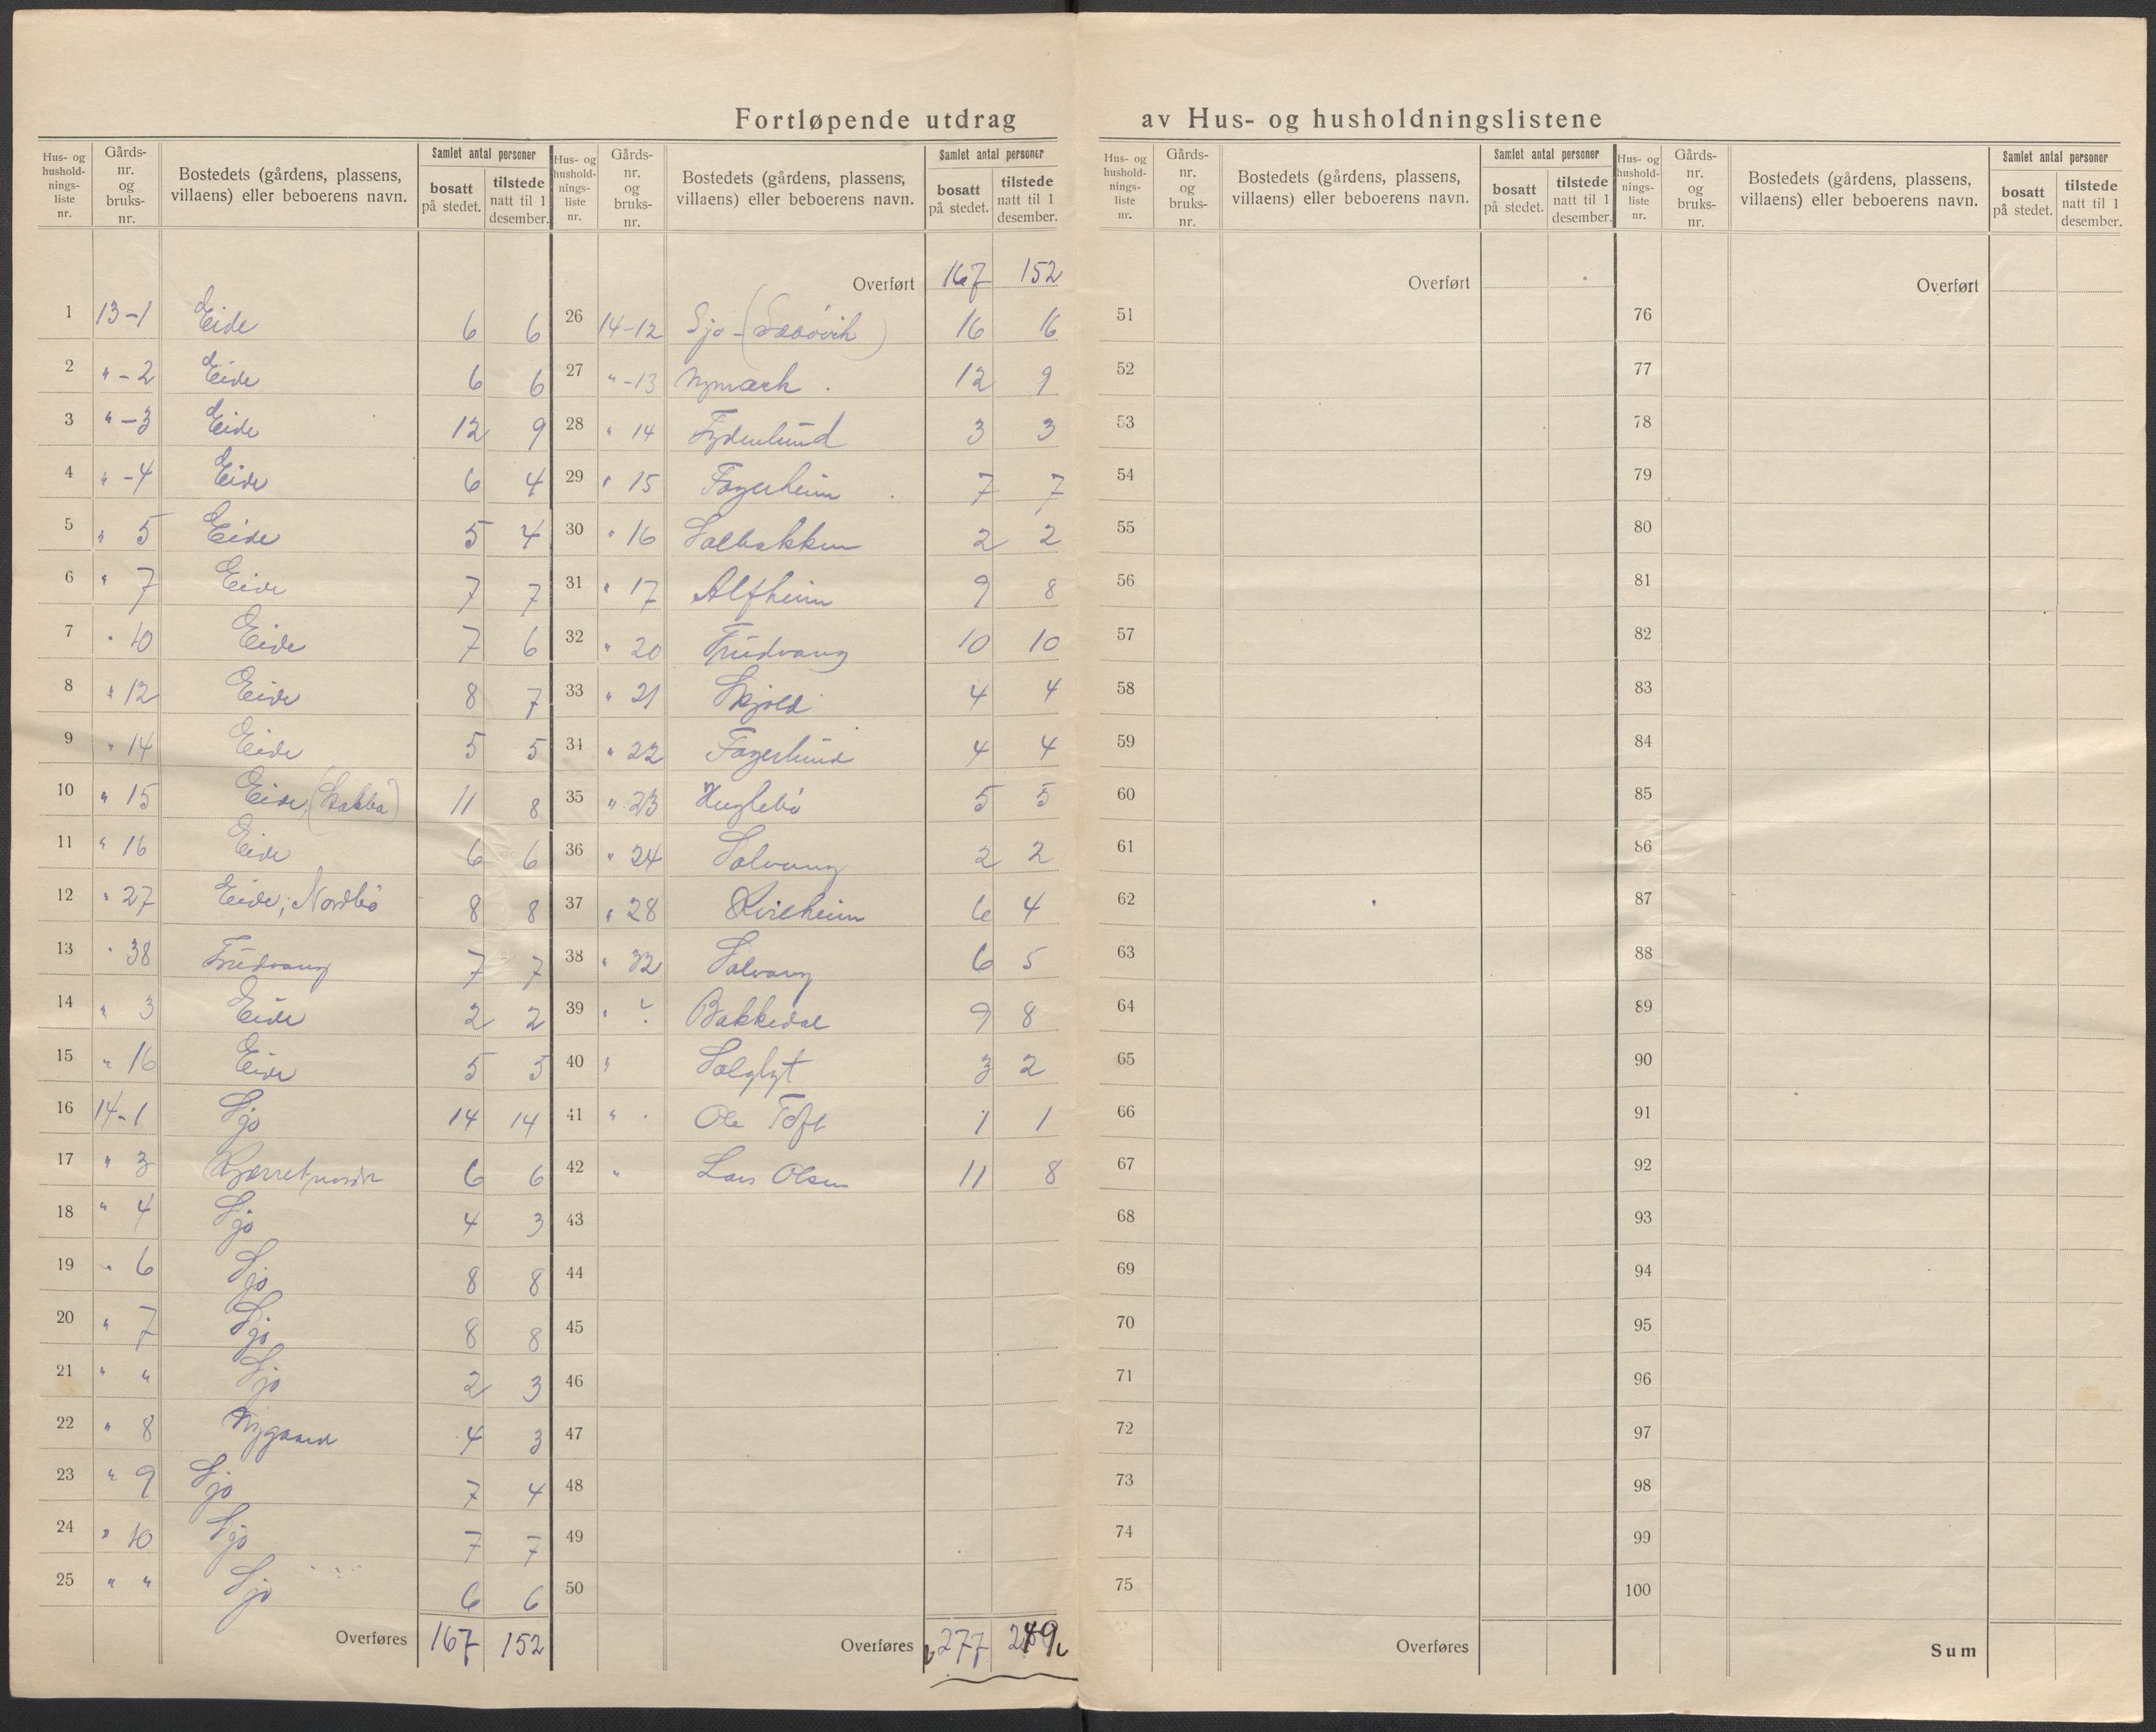 Fortløpende utdrag av Hus- og husholdningslistene
Hus- og husholdnings-liste nr. | Gårds-nr. og bruks-nr. | Bostedets (gårdens, plassens, villaens) eller beboerens navn. | Samlet antal personer | bosatt på stedet. | tilstede natt til 1 desember.
1 13-1 Eide 6 6
2 " -2 Eide 6 6
3 " -3 Eide 12 9
4 " -4 Eide 6 4
5 " 5 Eide 5 4
6 " 7 Eide 7 7
7 " 10 Eide 7 6
8 " 12 Eide 8 7
9 " 14 Eide 5 5
10 " 15 Eide 11 8
11 " 16 Eide 6 6
12 " 27 Eide, Nordbö 8 8
13 " 38 Fridvang 7 7
14 " 3 Eide 2 2
15 " 16 Eide 5 5
16 14-1 Sjo 14 14
17 " 3 6 6
18 " 4 Sjo 4 3
19 " 6 Sjo 8 8
20 " 7 Sjo 8 8
21 " " Sjo 2 3
22 " 8 Nygaard 4 3
23 " 9 Sjo 7 4
24 " 10 Sjo 7 7
25 " " Sjo 6 6
Overføres 167 152
Hus- og husholdnings-liste nr. | Gårds-nr. og bruks-nr. | Bostedets (gårdens, plassens, villaens) eller beboerens navn. | Samlet antal personer | bosatt på stedet. | tilstede natt til 1 desember.
Overført 167 152
26 14-12 Sjo 16 16
27 " -13 Nymark 12 9
28 " 14 Fydenlund 3 3
29 " 15 Fagerheim 7 7
30 " 16 Solbakken 2 2
31 " 17 Alfheim 9 8
32 " 20 Trudvang 10 10
33 " 21 Skjold 4 4
34 " 22 Fagerlund 4 4
35 " 23 Huglebö 5 5
36 " 24 Solvang 2 2
37 " 28 6 4
38 " 32 Solvang 6 5
39 " ? Bakkedal 9 8
40 " Solglyt 3 2
41 " " Ole Toft 1 1
42 " Lars Olsen 11 8
43
44
45
46
47
48
49
50
Overføres 277 249
Hus- og husholdnings-liste nr. | Gårds-nr. og bruks-nr. | Bostedets (gårdens, plassens, villaens) eller beboerens navn. | Samlet antal personer | bosatt på stedet. | tilstede natt til 1 desember.
Overført
51
52
53
54
55
56
57
58
59
60
61
62
63
64
65
66
67
68
69
70
71
72
73
74
75
Overføres
Hus- og husholdnings-liste nr. | Gårds-nr. og bruks-nr. | Bostedets (gårdens, plassens, villaens) eller beboerens navn. | Samlet antal personer | bosatt på stedet. | tilstede natt til 1 desember.
Overført
76
77
78
79
80
81
82
83
84
85
86
87
88
89
90
91
92
93
94
95
96
97
98
99
100
Sum